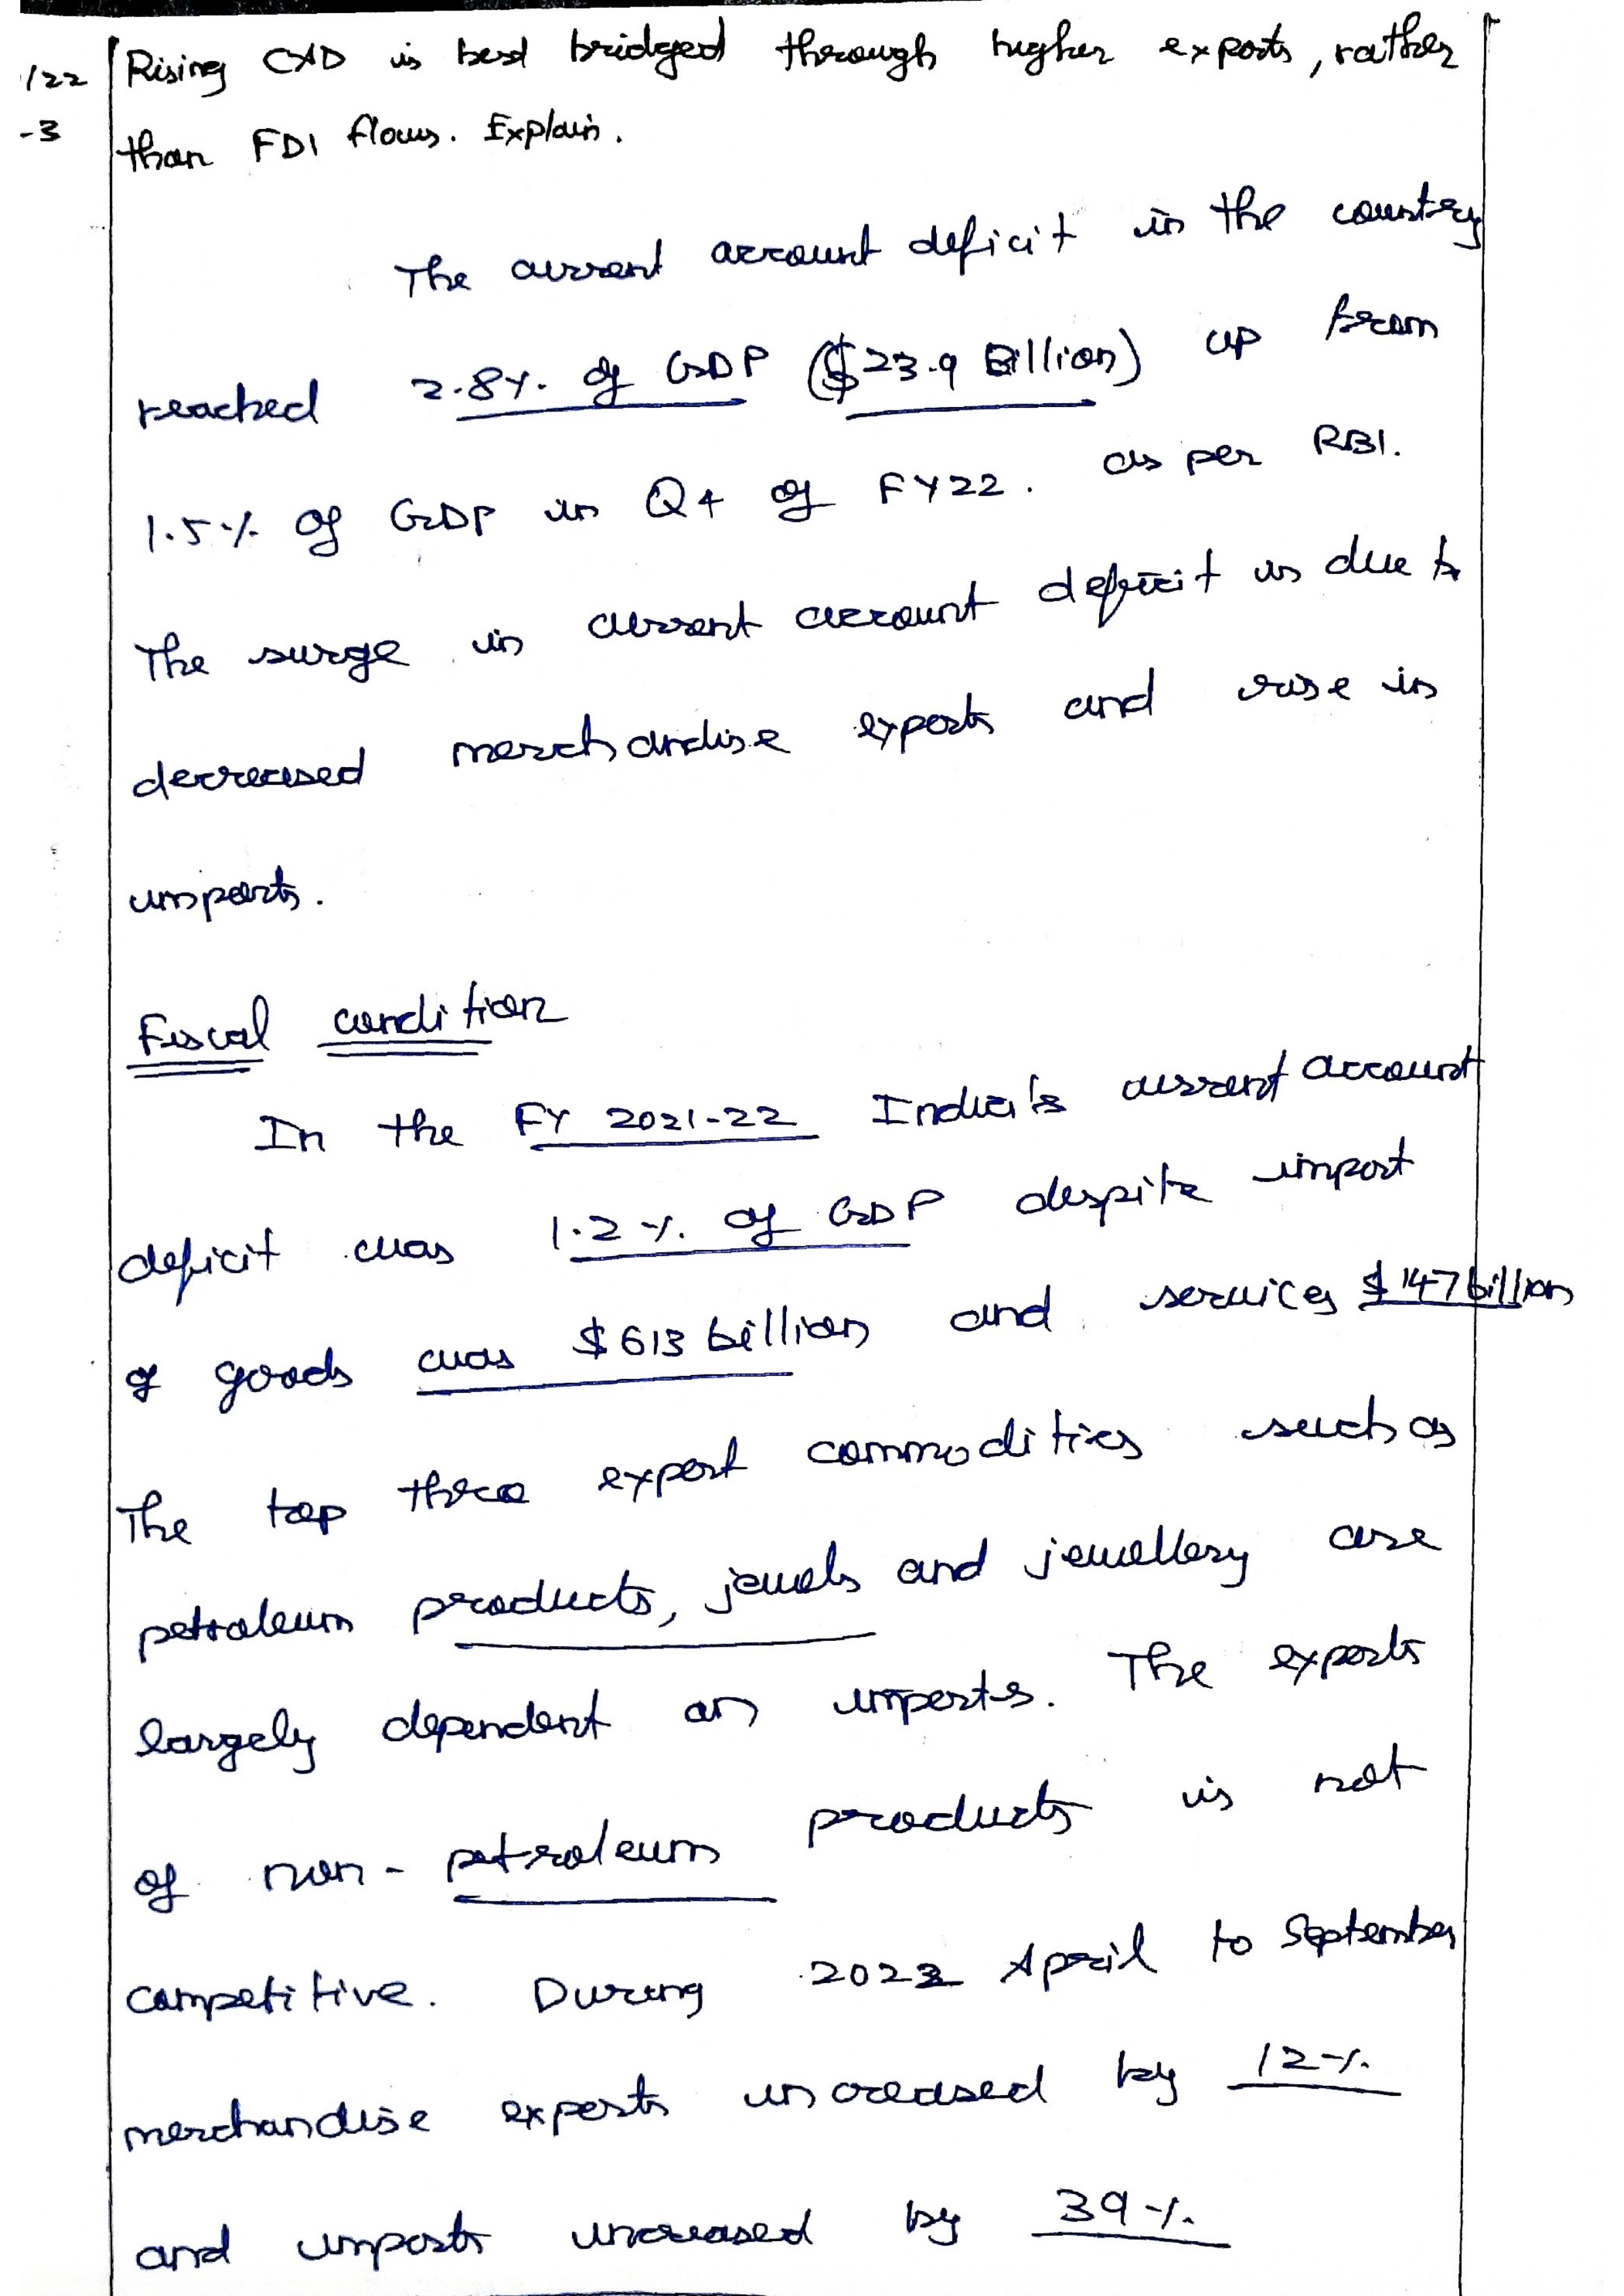 /22
-3
Rising CAD is best bridged through higher exports, rather
than FDI flows. Explain.
The current account deficit in the country
reached 2.8% of GDP ($23.9 Billion) up from
1.5% of GDP in Q4 of FY22. as per RBI.
The surge in current account deficit is due to
decreased merchandise exports and rise in
imports.
Fiscal condition
In the FY 2021-22 India's current account
deficit was 1.2% of GDP despite import
of goods was $613 billion and services $147 billion
The top three export commodities such as
petroleum products, jewels and jewellery are
largely dependent on imports. The exports
of non-petroleum products is not
competitive. During 2022 April to September
merchandise exports increased by 12%
and imports increased by 39%